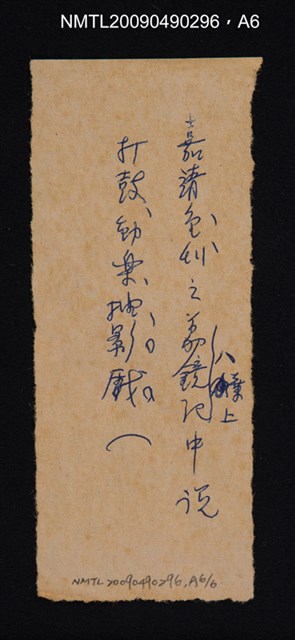 NMTL20090490296，A6
嘉靖色刊之荔鏡記中说
八葉上
打鼓動樂抽影戲。（
NMTL20090490296,A6/6